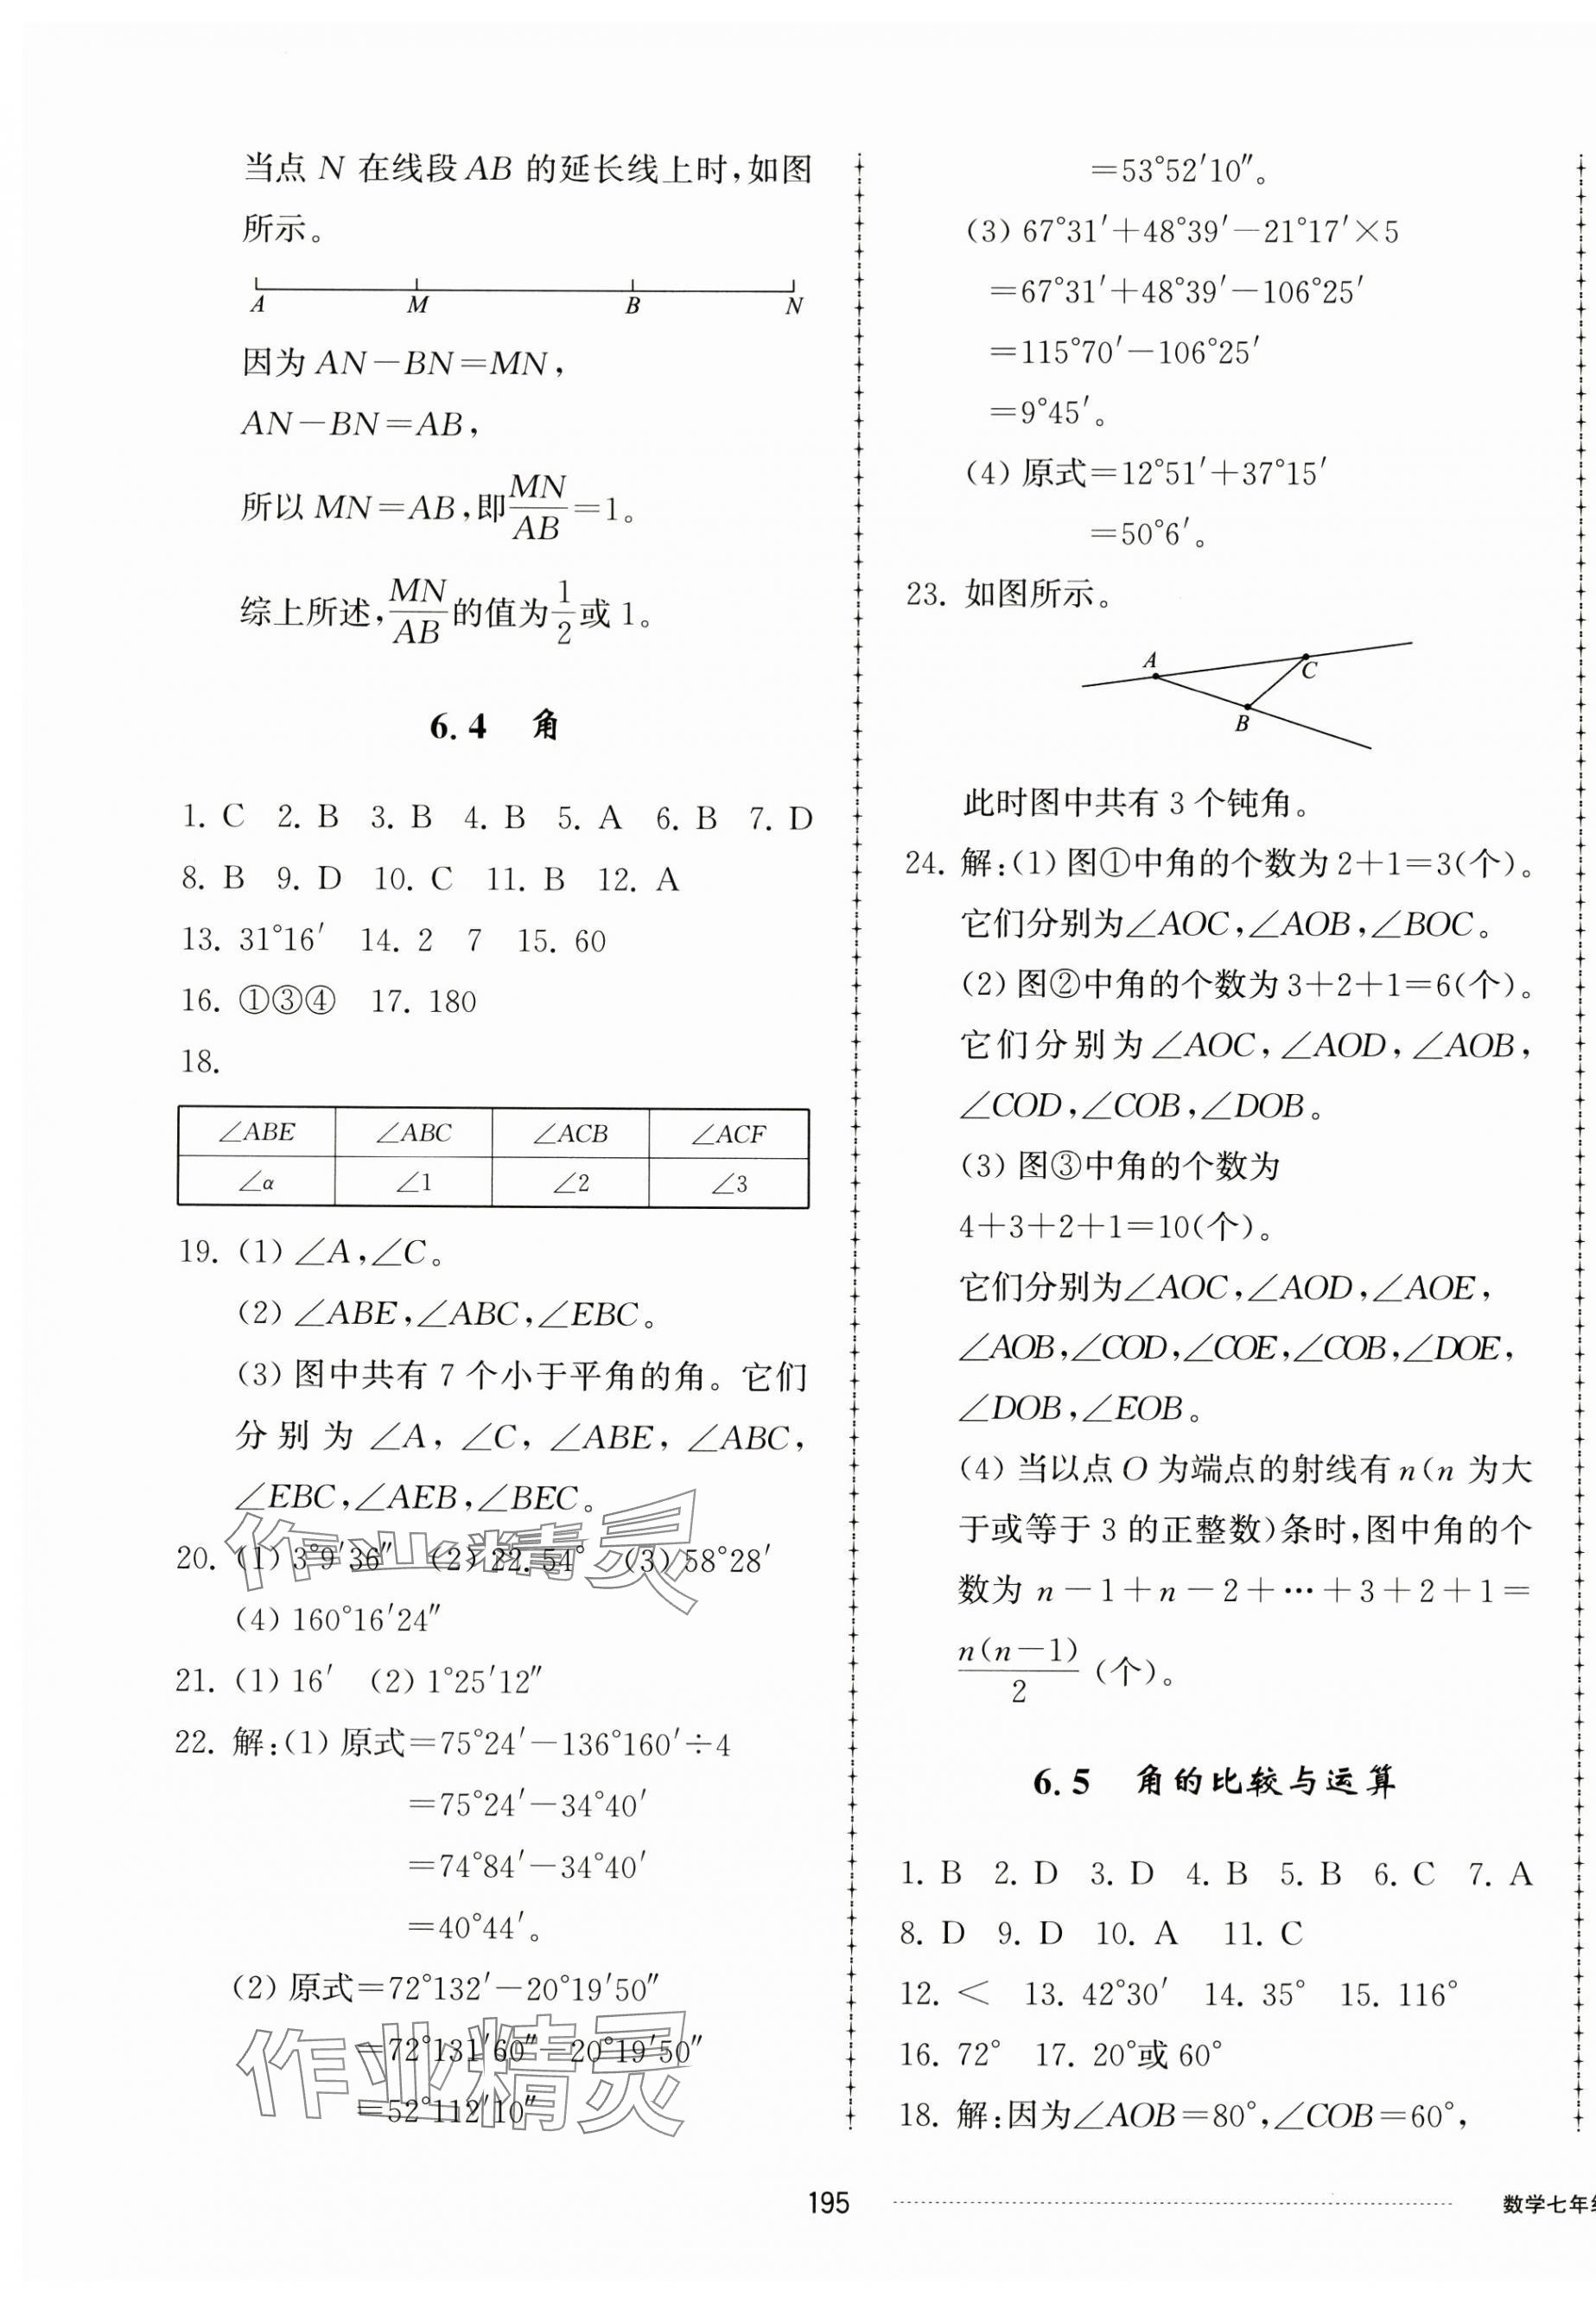 当点 N 在线段 AB 的延长线上时,如图
所示。
A M B N
因为 AN－BN＝MN,
AN－BN＝AB,
所以 MN＝AB,即MN/AB＝1。
综上所述,MN/AB的值为1/2或 1。
6.4 角
1. C 2. B 3. B 4. B 5. A 6. B 7. D
8. B 9. D 10. C 11. B 12. A
13. 31°16′ 14. 2 7 15. 60
16. ①③④ 17. 180
18.
∠ABE ∠ABC ∠ACB ∠ACF
∠α ∠1 ∠2 ∠3
19. (1) ∠A,∠C。
(2) ∠ABE,∠ABC,∠EBC。
(3) 图中共有 7 个小于平角的角。它们
分别为 ∠A, ∠C, ∠ABE, ∠ABC,
∠EBC,∠AEB,∠BEC。
作业精灵
20. (1) 3°9′36″ (2) 22.54° (3) 58°28′
(4) 160°16′24″
21. (1) 16′ (2) 1°25′12″
22. 解:(1) 原式＝75°24′－136°160′÷4
＝75°24′－34°40′
＝74°84′－34°40′
＝40°44′。
(2) 原式＝72°132′－20°19′50″
作业精灵
＝72°131′60″－20°19′50″
＝52°112′10″
＝53°52′10″。
(3) 67°31′＋48°39′－21°17′×5
＝67°31′＋48°39′－106°25′
＝115°70′－106°25′
＝9°45′。
(4) 原式＝12°51′＋37°15′
＝50°6′。
23. 如图所示。
A C
B
此时图中共有 3 个钝角。
24. 解:(1) 图①中角的个数为 2＋1＝3(个)。
它们分别为∠AOC,∠AOB,∠BOC。
(2) 图②中角的个数为 3＋2＋1＝6(个)。
它们分别为 ∠AOC, ∠AOD, ∠AOB,
∠COD,∠COB,∠DOB。
(3) 图③中角的个数为
4＋3＋2＋1＝10(个)。
它们分别为∠AOC,∠AOD,∠AOE,
∠AOB,∠COD,∠COE,∠COB,∠DOE,
∠DOB,∠EOB。
(4) 当以点 O 为端点的射线有 n(n 为大
于或等于 3 的正整数)条时,图中角的个
数为 n－1＋n－2＋…＋3＋2＋1＝
n(n－1)/2 (个)。
6.5 角的比较与运算
1. B 2. D 3. D 4. B 5. B 6. C 7. A
8. D 9. D 10. A 11. C
12. ＜ 13. 42°30′ 14. 35° 15. 116°
16. 72° 17. 20°或 60°
18. 解:因为∠AOB＝80°,∠COB＝60°,
195
数学七年